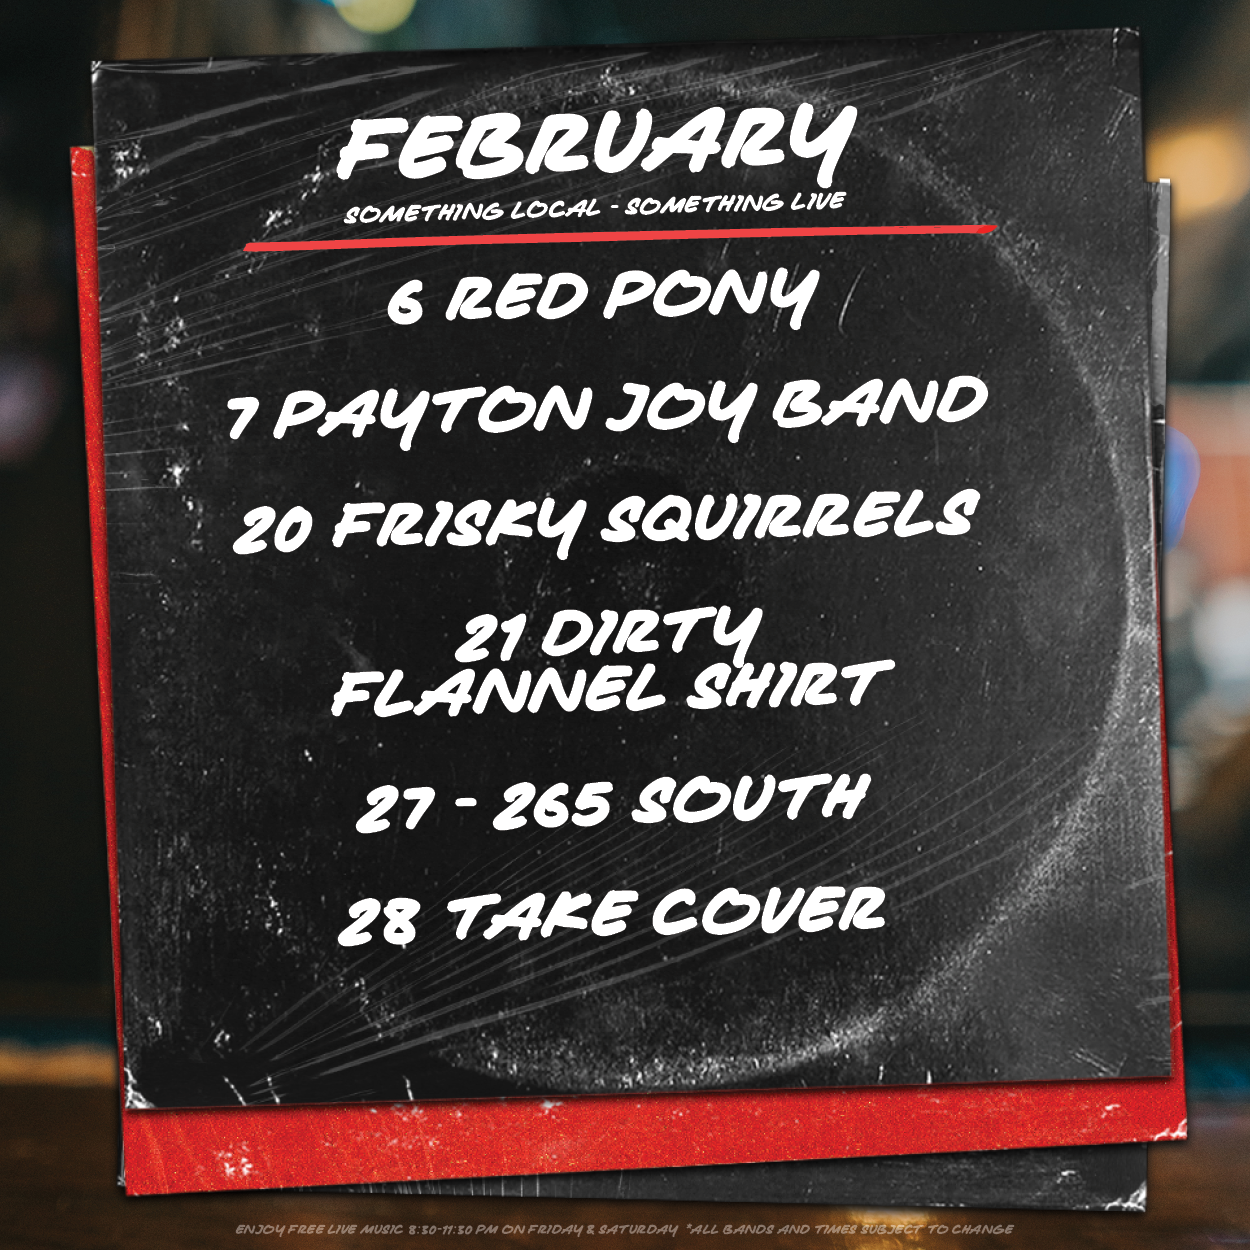 FEBRUARY
SOMETHING LOCAL - SOMETHING LIVE
6 RED PONY
7 PAYTON JOY BAND
20 FRISKY SQUIRRELS
21 DIRTY
FLANNEL SHIRT
27 - 265 SOUTH
28 TAKE COVER
ENJOY FREE LIVE MUSIC 8:30-11:30 PM ON FRIDAY & SATURDAY *ALL BANDS AND TIMES SUBJECT TO CHANGE